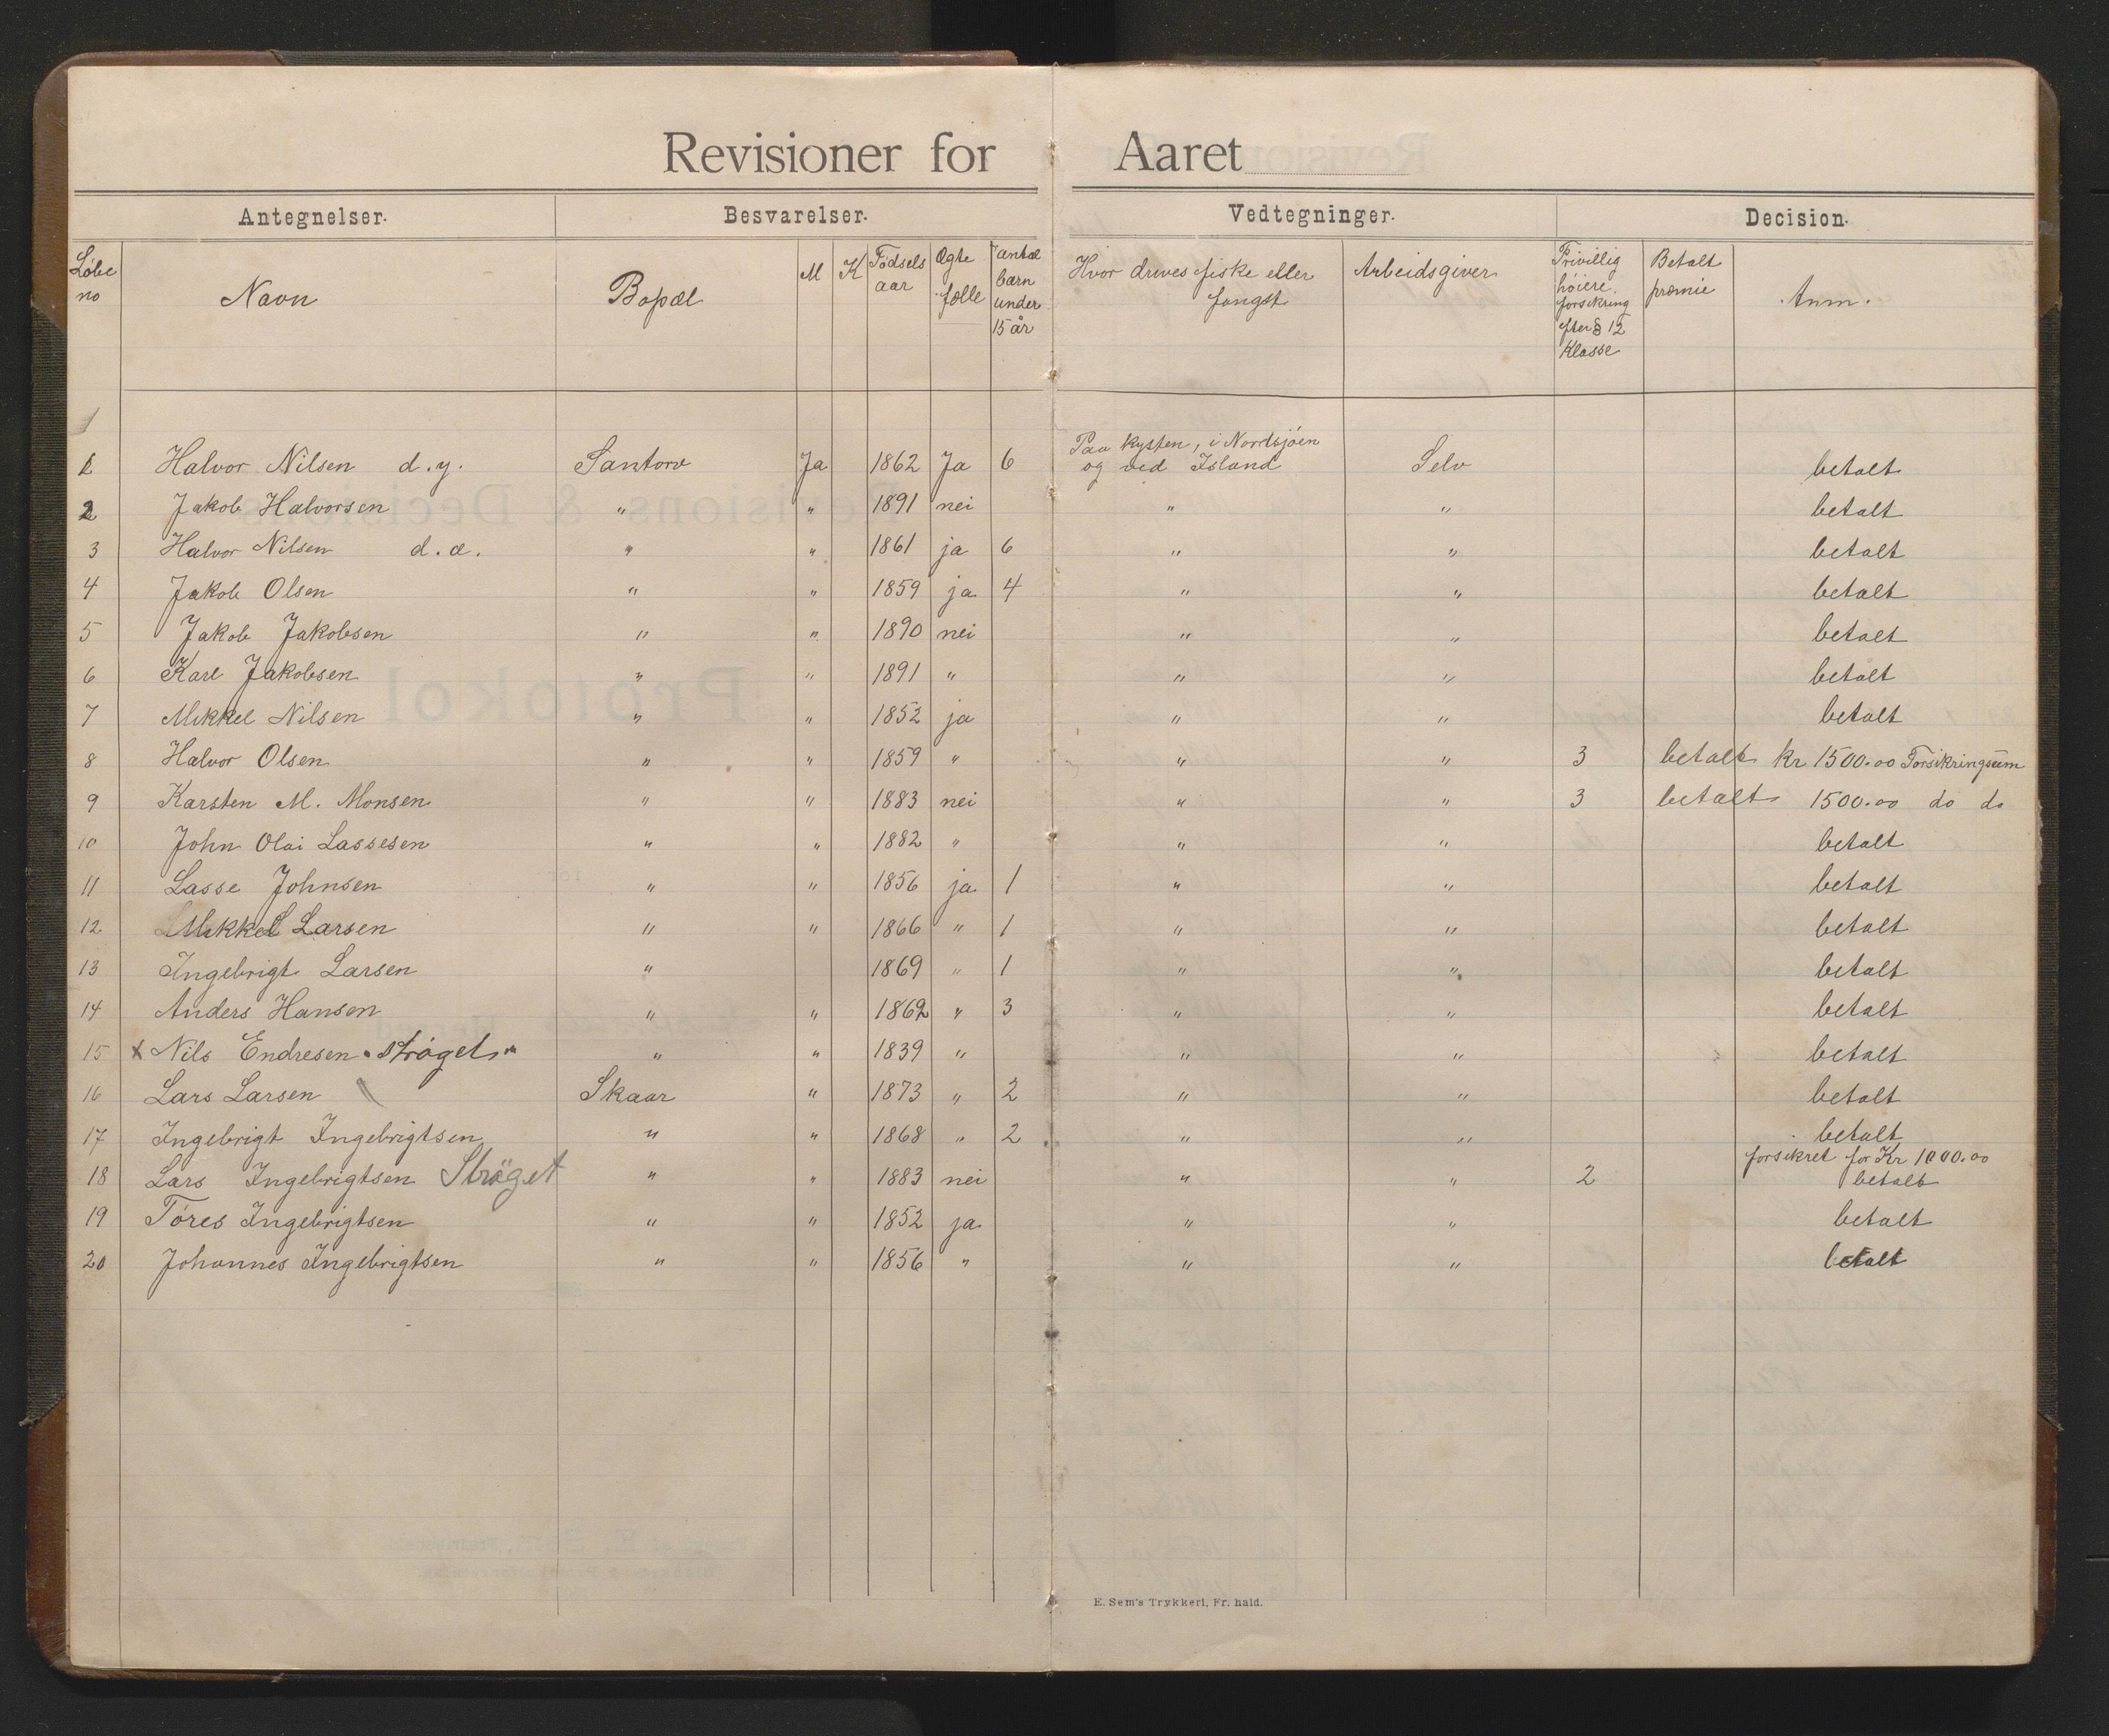 Revisioner for Aaret
Antegnelser. Besvarelser. Vedtegninger. Decision.
Løbe no Navn Bopæl M K Fødsels aar Ægte fælle antal barn under 15 år Hvor drives fiske eller fangst Arbeidsgiver Frivillig høiere forsikring efter § 12 Klasse Betalt præmie Anm.
1
1 Halvor Nilsen d.y. Santorv Ja 1862 Ja 6 Paa kysten, i Nordsjøen og ved Island Selv betalt
2 Jakob Halvorsen " " 1891 nei " " betalt
3 Halvor Nilsen d.æ. " " 1861 ja 6 " " betalt
4 Jakob Olsen " " 1859 ja 4 " " betalt
5 Jakob Jakobsen " " 1890 nei " " betalt
6 Karl Jakobsen " " 1891 " " " betalt
7 Mikkel Nilsen " " 1852 ja " " betalt
8 Halvor Olsen " " 1859 " " " 3 betalt kr 1500.00 Forsikringsum
9 Karsten M. Monsen " " 1883 nei " " 3 betalt 1500.00 do do
10 John Olai Lassesen " " 1882 " " " betalt
11 Lasse Johnsen " " 1856 ja 1 " " betalt
12 Mikkel Larsen " " 1866 " 1 " " betalt
13 Ingebrigt Larsen " 1869 " 1 " " betalt
14 Anders Hansen " " 1862 " 3 " " betalt
15 x Nils Endresen "strøget" " " 1839 " " " betalt
16 Lars Larsen Skaar " 1873 " 2 " " betalt
17 Ingebrigt Ingebrigtsen " " 1868 " 2 " " betalt
18 Lars Ingebrigtsen Strøget " " 1883 nei " " 2 forsikret for Kr 1000.00 betalt
19 Tøres Ingebrigtsen " " 1852 ja " " betalt
20 Johannes Ingebrigtsen " " 1856 " " " betalt
E. Sem's Trykkeri, Fr. hald.